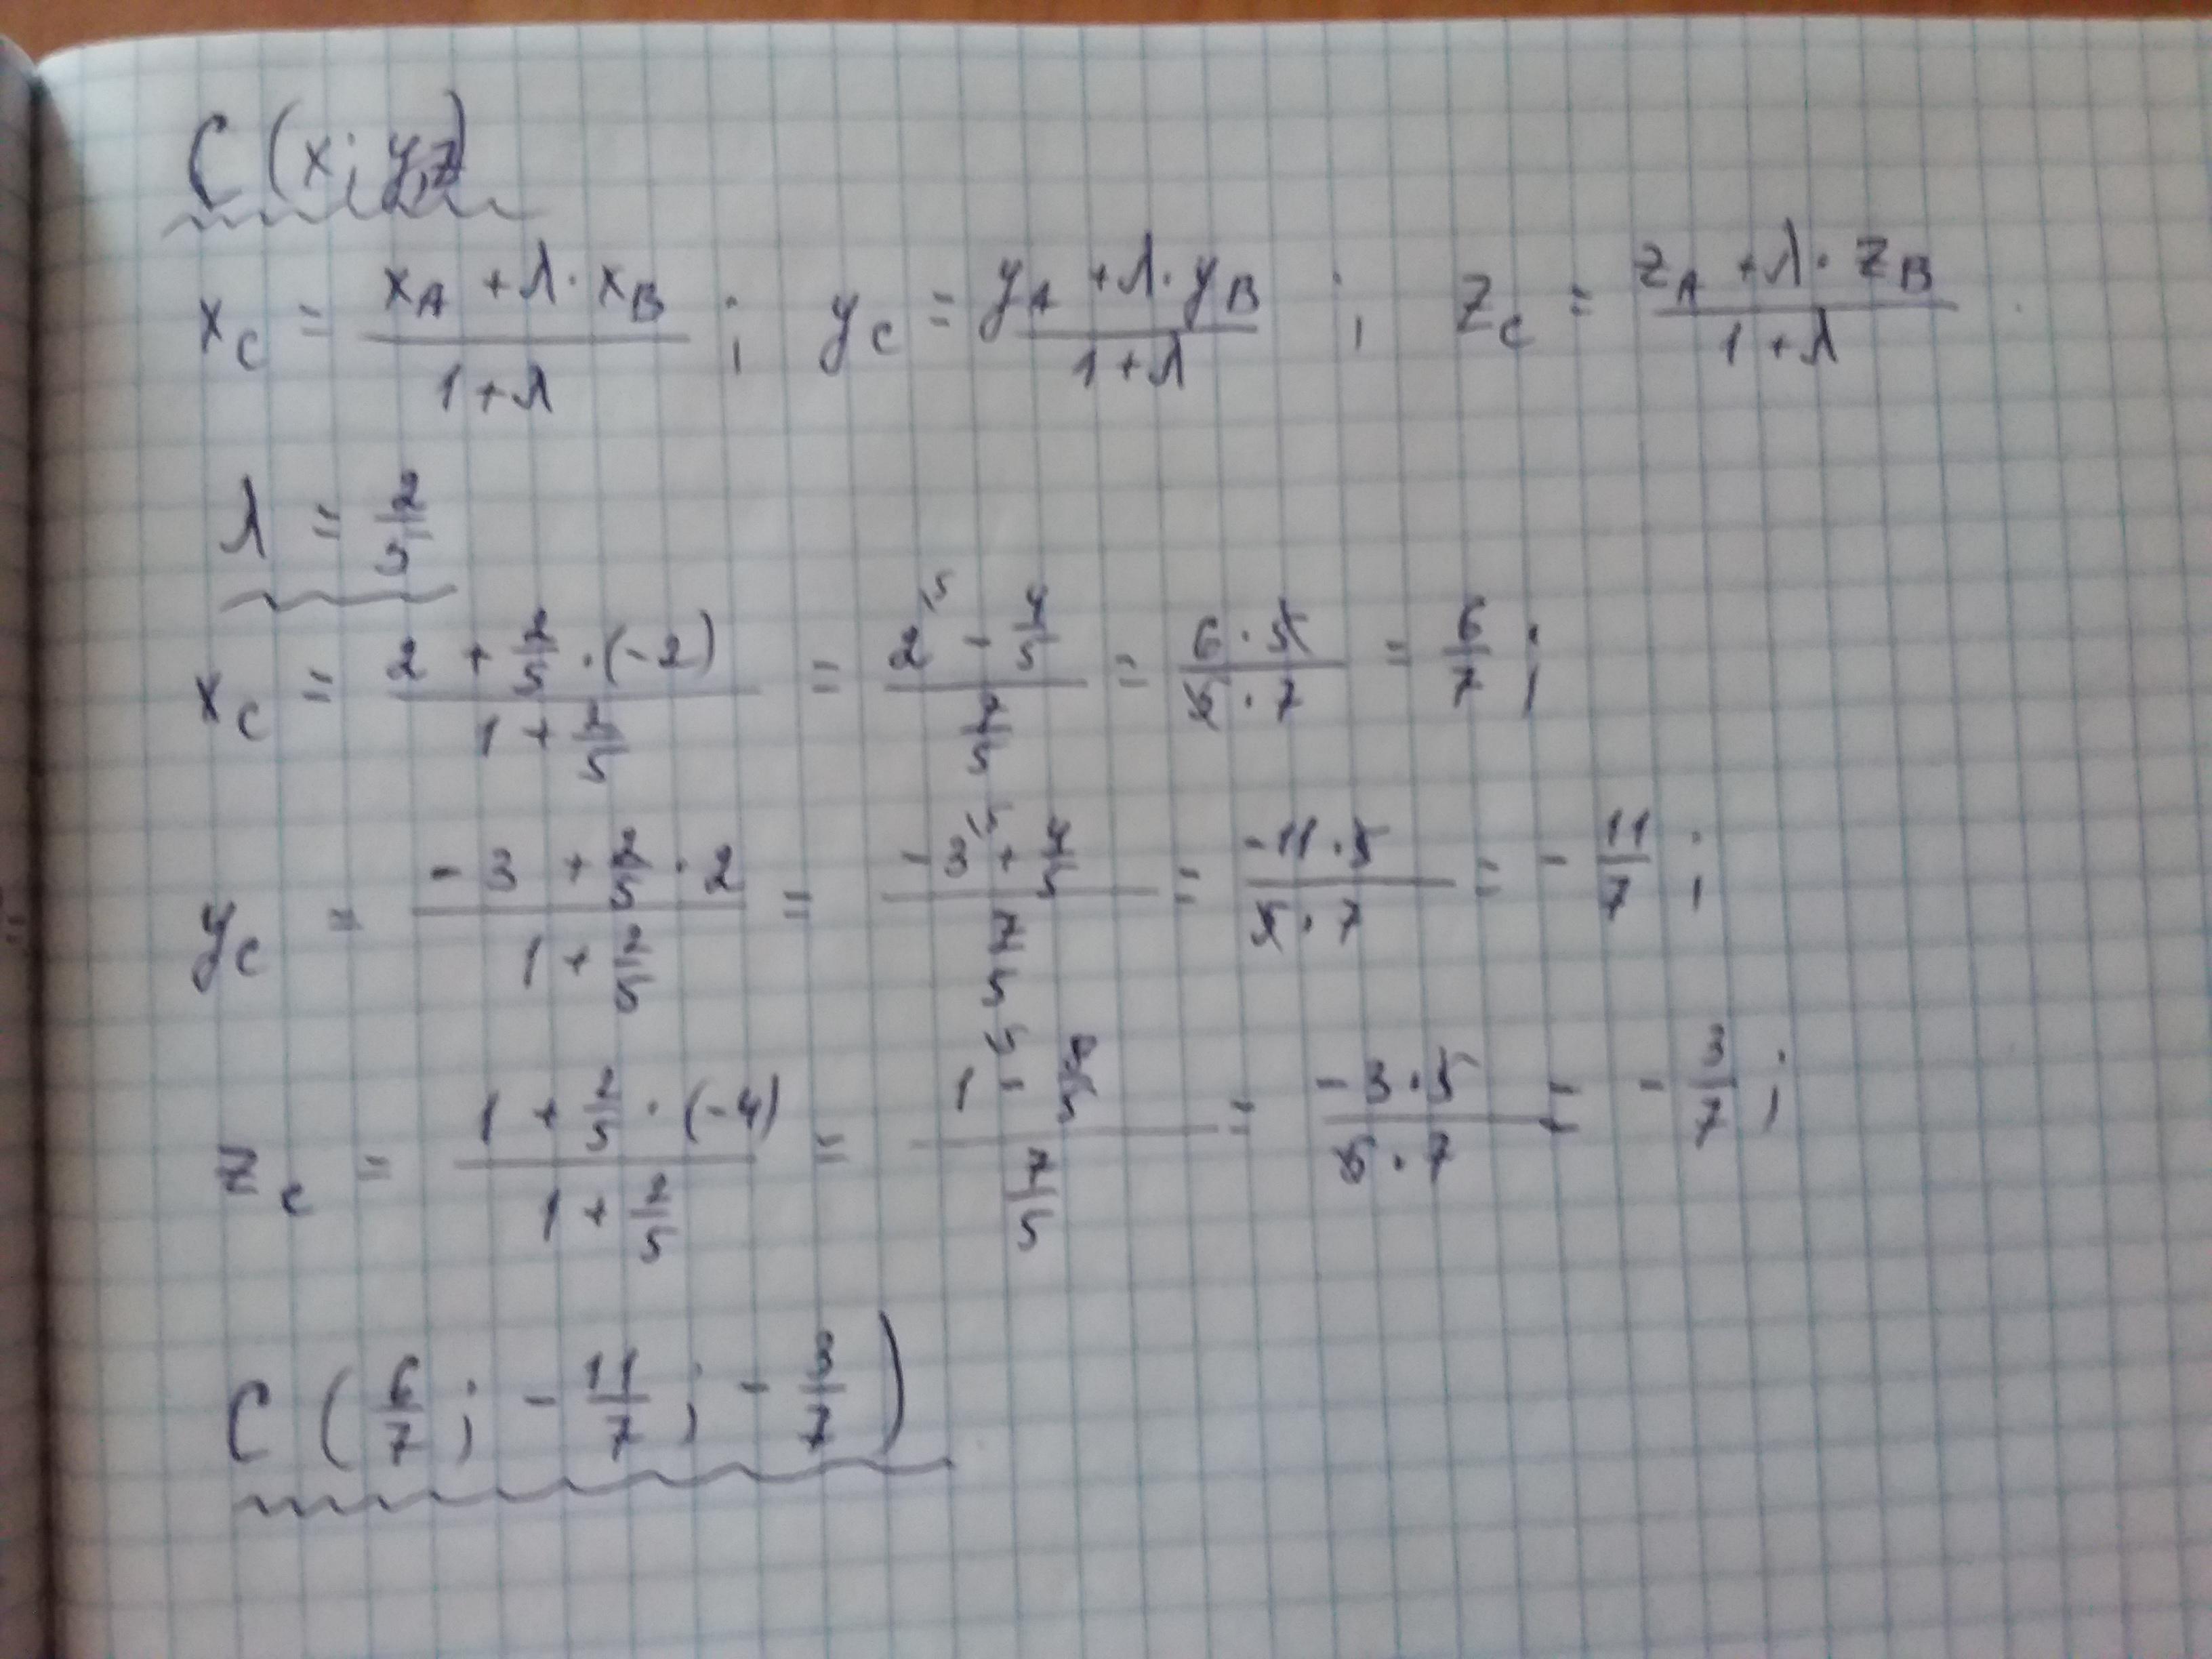 C (x; y; z)
x_C = (x_A + λ · x_B) / (1 + λ) ; y_C = (y_A + λ · y_B) / (1 + λ) ; z_C = (z_A + λ · z_B) / (1 + λ)
λ = 2/5
x_C = (2 + 2/5 · (-2)) / (1 + 2/5) = (2^5 - 4/5) / (7/5) = (6 · 5) / (5 · 7) = 6/7 ;
y_C = (-3 + 2/5 · 2) / (1 + 2/5) = (-3^5 + 4/5) / (7/5) = (-11 · 5) / (5 · 7) = - 11/7 ;
z_C = (1 + 2/5 · (-4)) / (1 + 2/5) = (1^5 - 8/5) / (7/5) = (-3 · 5) / (5 · 7) = - 3/7 ;
C (6/7 ; - 11/7 ; - 3/7)